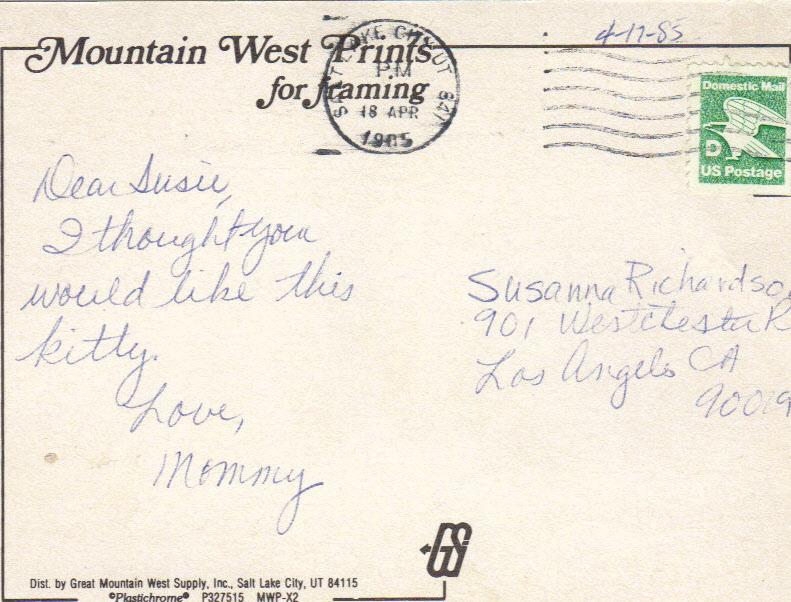 Mountain West Prints
for framing
SALT LAKE CITY, UT 841
P.M
18 APR
1985
4-17-85
Domestic Mail
D
US Postage
Dear Susie,
I thought you
would like this
kitty.
Love,
Mommy
Susanna Richardson
901 Westchester
Los Angeles CA
90019
GS
Dist. by Great Mountain West Supply, Inc., Salt Lake City, UT 84115
©Plastichrome® P327515 MWP-X2